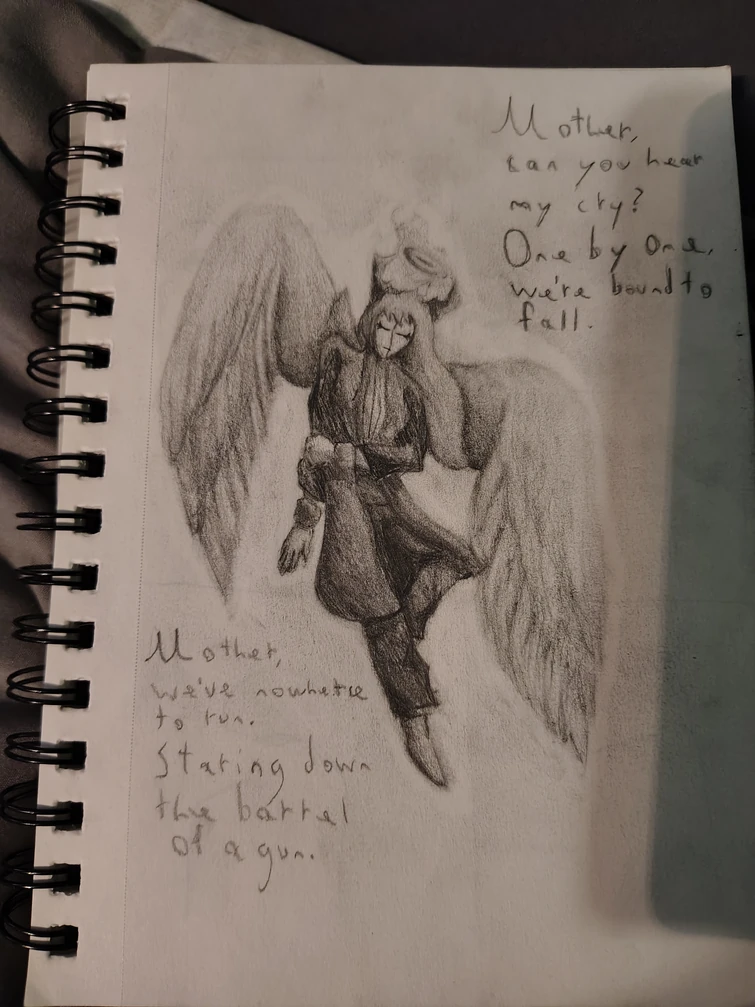 Mother,
can you hear
my cry?
One by one,
we're bound to
fall.
Mother,
we've nowhere
to run.
Staring down
the barrel
of a gun.